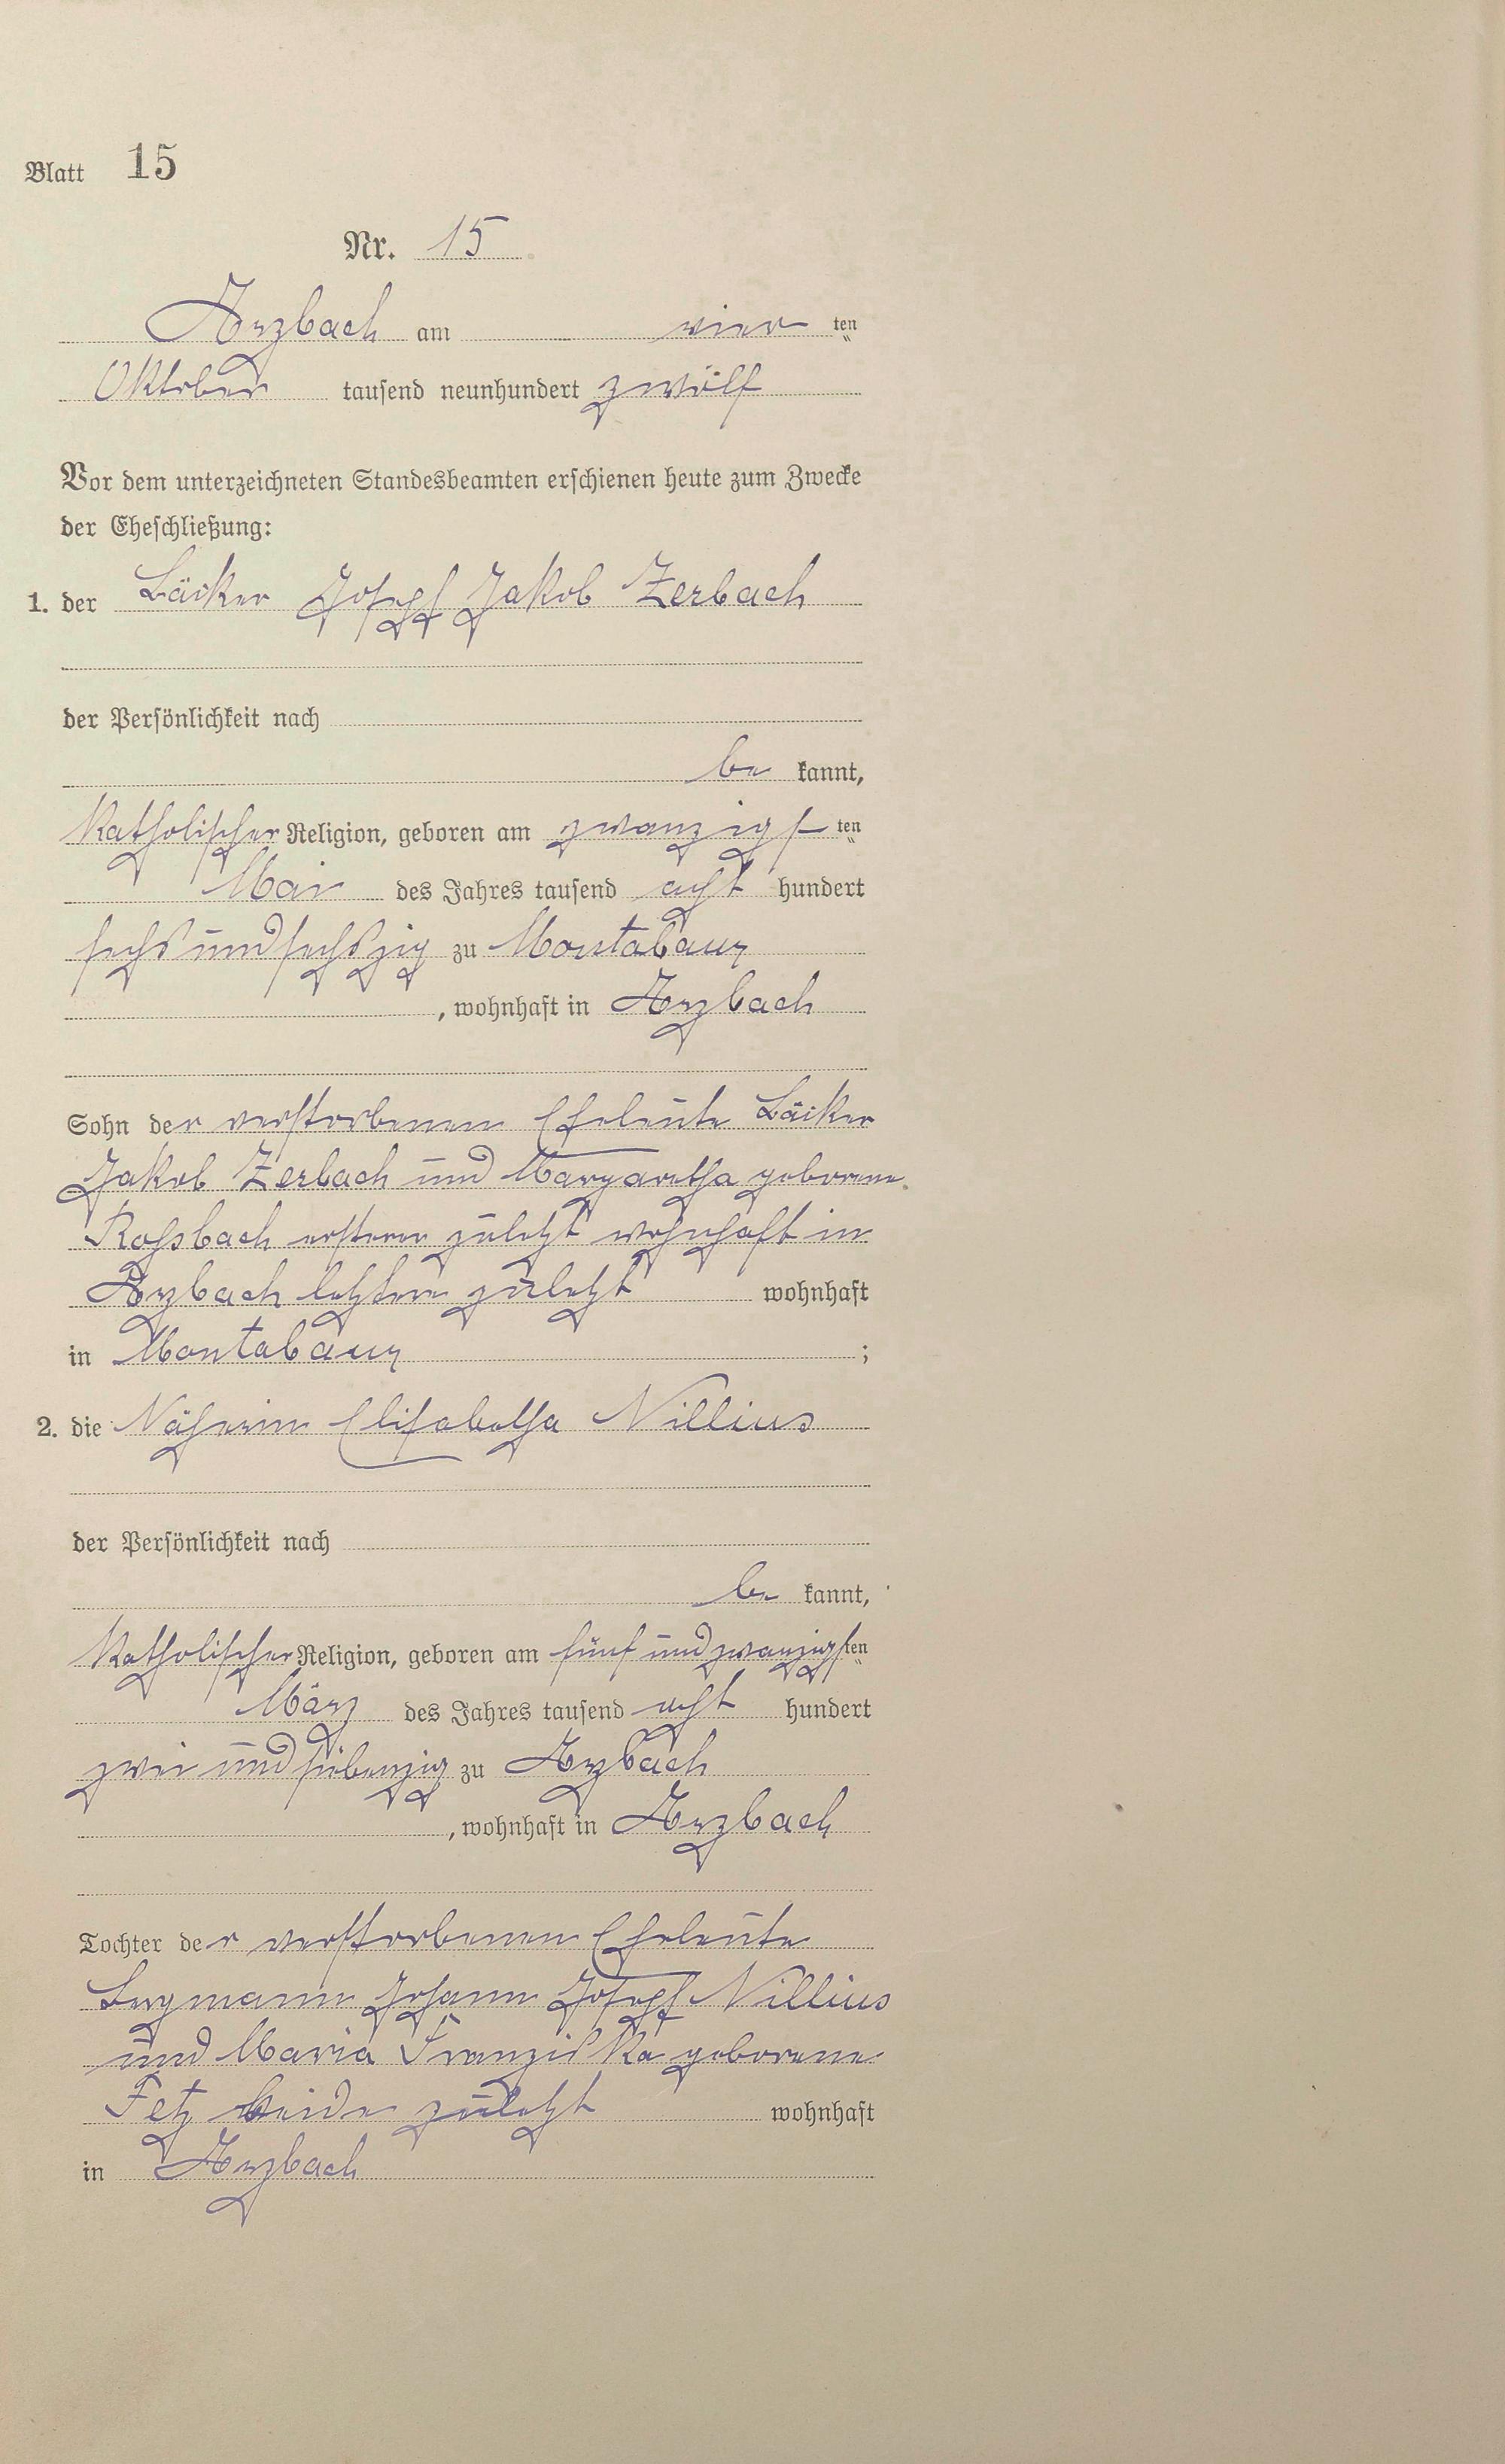 Blatt 15
Nr. 15
Arzbach am vier ten
Oktober tausend neunhundert zwölf
Vor dem unterzeichneten Standesbeamten erschienen heute zum Zwecke
der Eheschließung:
1. der Bäcker Joseph Jakob Zerbach
der Persönlichkeit nach
be kannt,
katholischer Religion, geboren am zwanzigsten
Mai des Jahres tausend acht hundert
sechsundsechszig zu Montabaur
, wohnhaft in Arzbach
Sohn der verstorbenen Eheleute Bäcker
Jakob Zerbach und Margaretha geborene
Rossbach ersterer zuletzt wohnhaft in
Arzbach letztere zuletzt wohnhaft
in Montabaur ;
2. die Näherin Elisabetha Nillius
der Persönlichkeit nach
be kannt,
katholischer Religion, geboren am fünf und zwanzigsten
März des Jahres tausend acht hundert
zwei und siebenzig zu Arzbach
, wohnhaft in Arzbach
Tochter der verstorbenen Eheleute
Bergmann Johann Joseph Nillius
und Maria Franziska geborene
Fetz beide zuletzt wohnhaft
in Arzbach